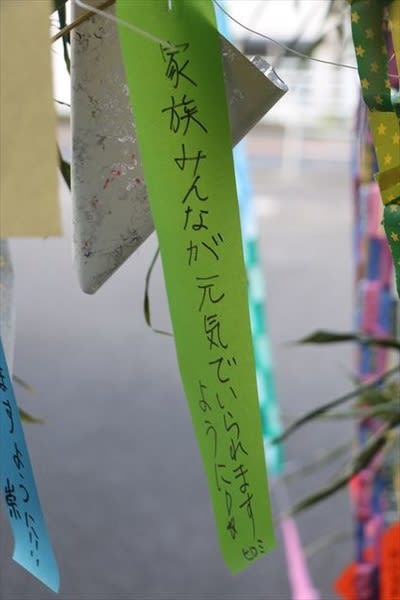 家族みんなが元気でいられます
ように
ヒロミ
ますように!!